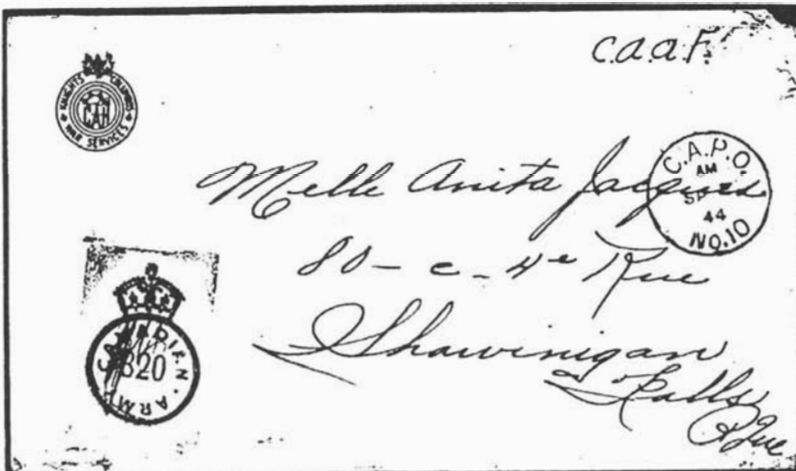 C.A.A.F.
KNIGHTS OF COLUMBUS
CAH
WAR SERVICES
C.A.P.O.
AM
SP
44
NO.10
Melle Anita Jacques
80 - c - 4e Rue
Shawinigan
Falls
Que
CANADIAN ARMY
820